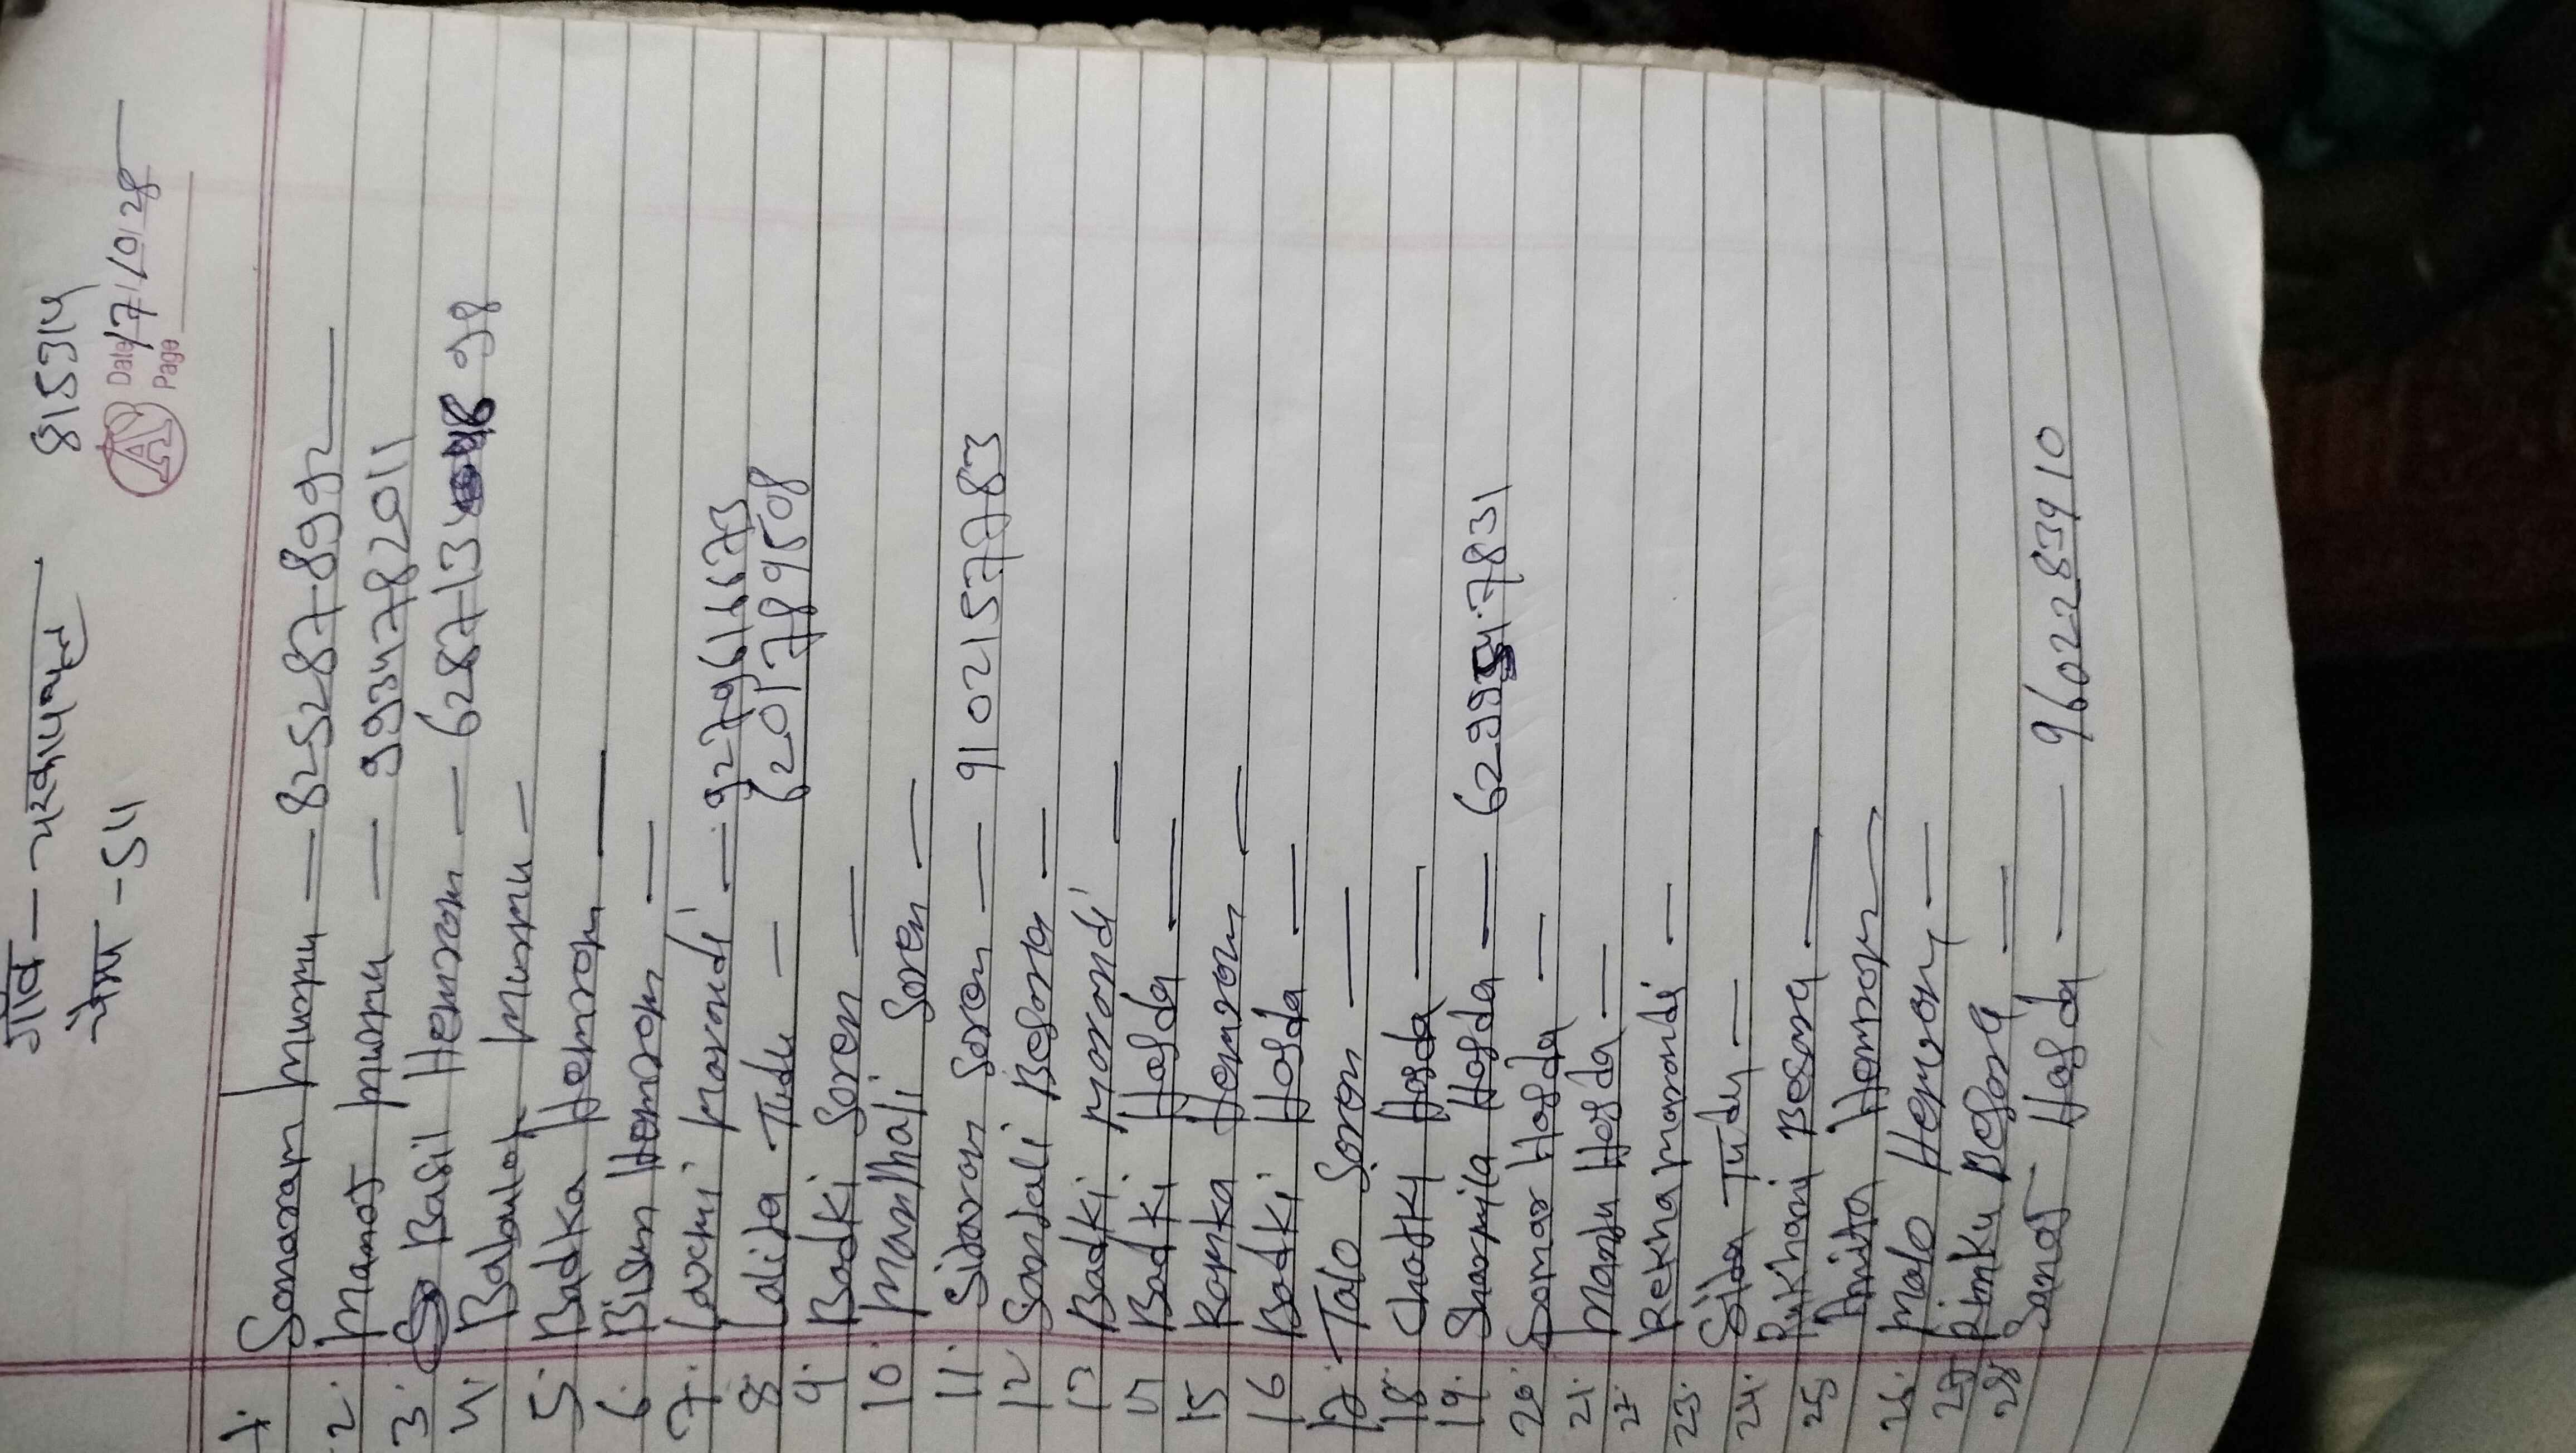 गाँव — 815314
पेम्प - 511
Date 17/10/28
Page
1. Sonaram Murmu — 8252878992
2. Manoj Murmu — 9934782011
3. Basil Hemrom — 628713 98
4. Babulal Murmu —
5. Badka Hemrom —
6. Bisun Hemrom —
7. Laxmi Marandi — 9279616673
8. Lalita Tudu — 6201789508
9. Badki Soren —
10. Manjhali Soren —
11. Sidaram Soren — 9102157783
12. Sonjali Besra —
13 Badki Marandi —
14 Badki Hasda —
15 Barka Hemrom —
16 Badki Hasda —
17. Talo Soren —
18. Chotki Hasda —
19. Sharmila Hasda — 6299547831
20. Somar Hasda —
21. Manju Hasda —
22. Rekha Marandi —
23. Sita Tudu —
24. Besra —
25 Anita Hemrom
26. Malo Hemrom —
27 Rinku Besra =
28 Sanoj Hasda — 9602283910